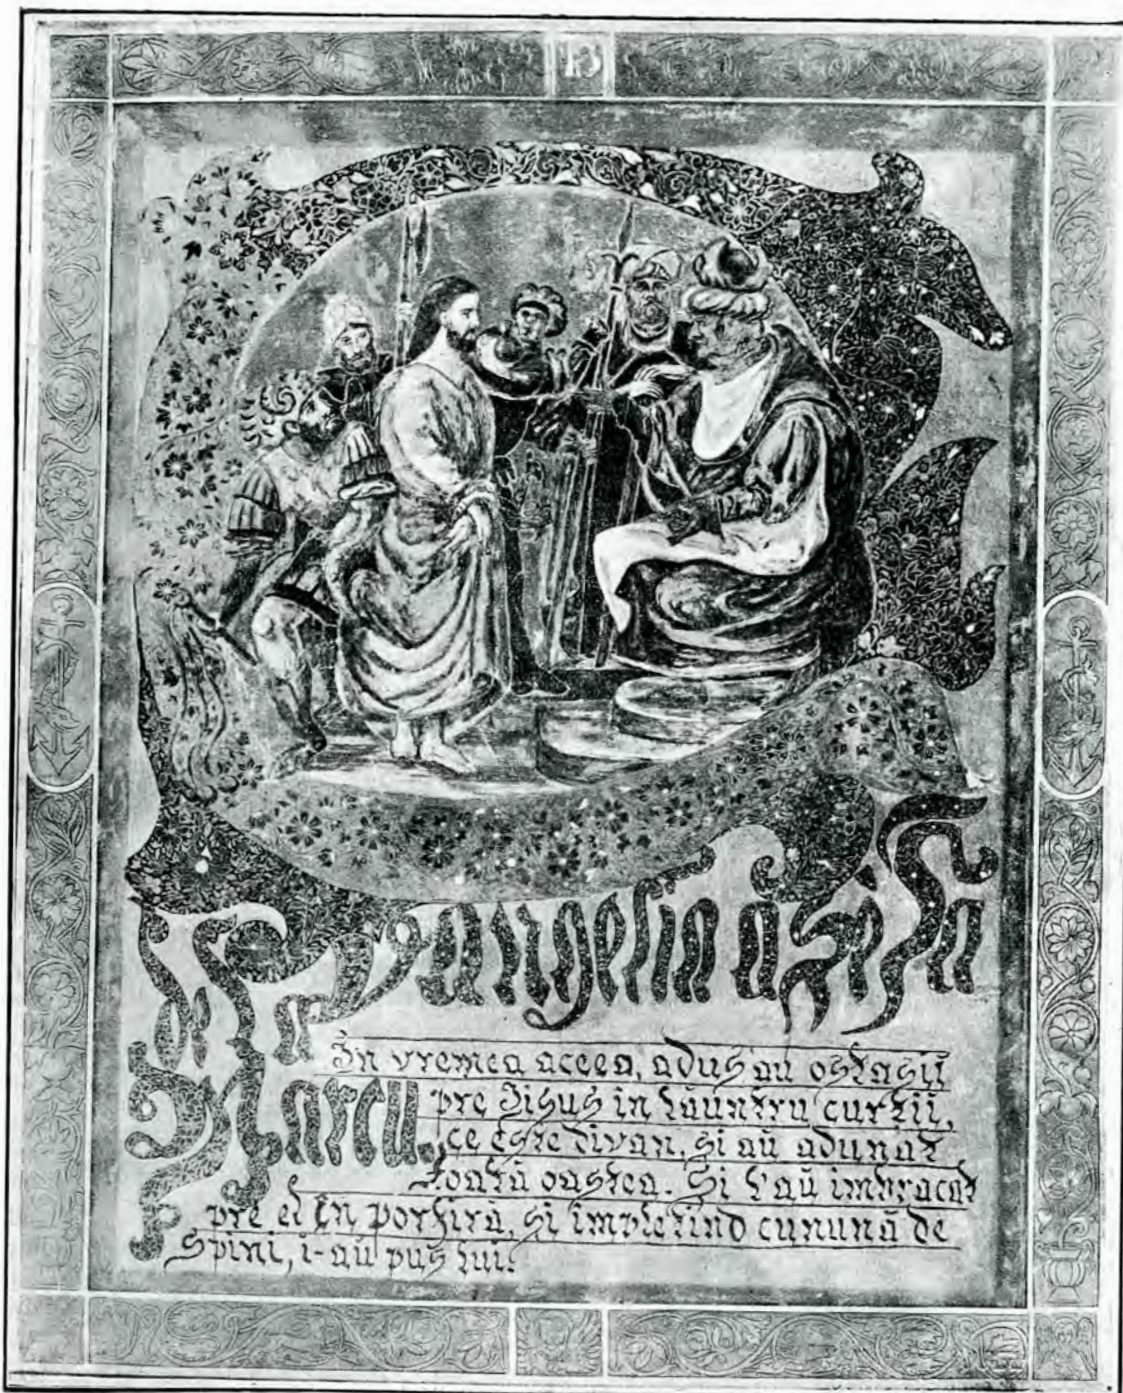 Evangelia a 5ea
de la
Marcu.
În vremea aceea, adus'au ostașii
pre Iisus in lăuntru curții,
ce este divan, și aŭ adunat
toată oastea. Și l'aŭ imbracat
pre el în porfiră, și împletind cunună de
Spini, i-aŭ pus lui.